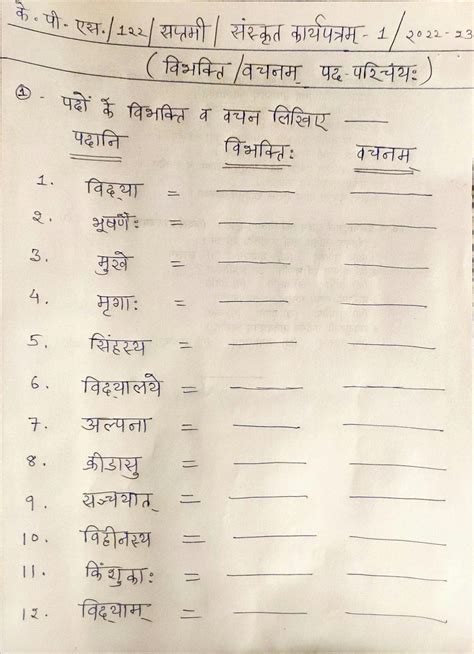 के. पी. एस./122/सप्तमी/संस्कृत कार्यपत्रम्-1/2022-23
(विभक्ति/वचनम् पद-परिचयः)
① - पदों के विभक्ति व वचन लिखिए —
पदानि विभक्तिः वचनम्
1. विद्या =
२. भूषणैः =
3. मुखे =
4. मृगाः =
5. सिंहस्य =
6. विद्यालये =
7. अल्पना =
8. क्रीडासु =
9. सञ्चयात् =
10. विहीनस्य =
11. किंशुकाः =
12. विद्याम् =